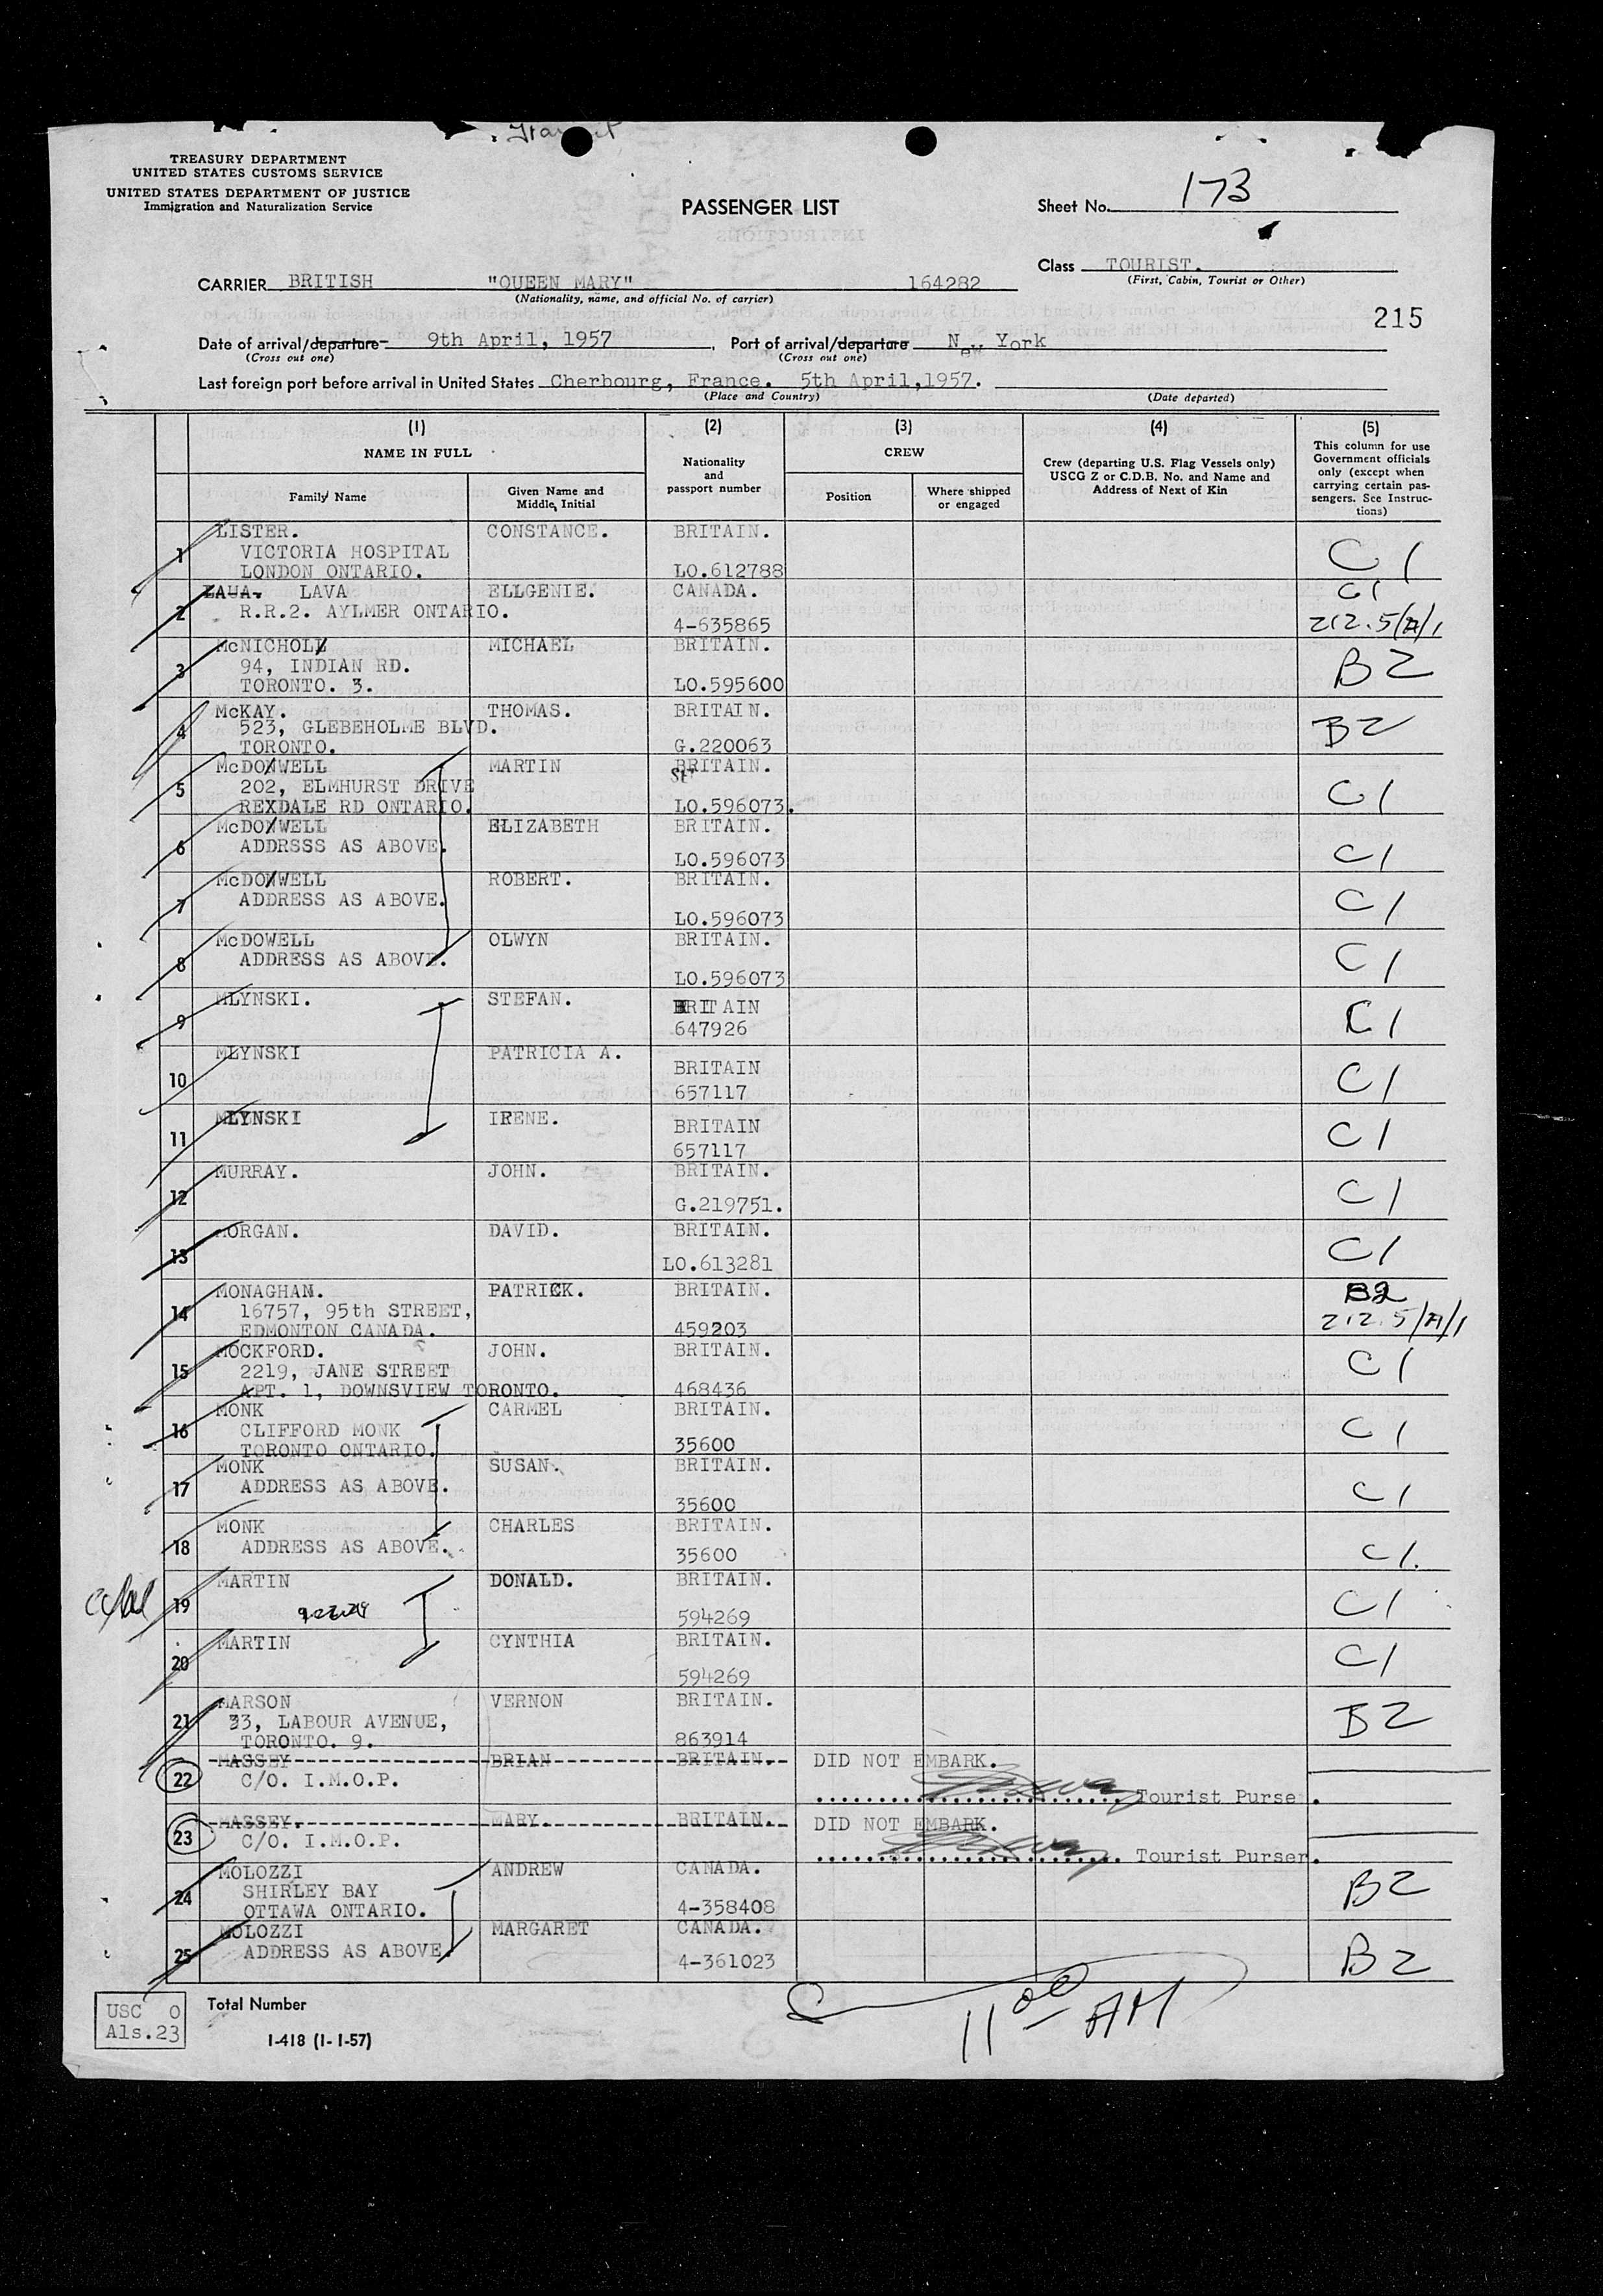 Transit
TREASURY DEPARTMENT
UNITED STATES CUSTOMS SERVICE
UNITED STATES DEPARTMENT OF JUSTICE
Immigration and Naturalization Service
PASSENGER LIST
Sheet No. 173
Class TOURIST.
(First, Cabin, Tourist or Other)
CARRIER BRITISH "QUEEN MARY" 164282
(Nationality, name, and official No. of carrier)
215
Date of arrival/departure 9th April, 1957 Port of arrival/departure New York
(Cross out one) (Cross out one)
Last foreign port before arrival in United States Cherbourg, France. 5th April,1957.
(Place and Country) (Date departed)
(1) (2) (3) (4) (5)
NAME IN FULL
Nationality and passport number
CREW
Crew (departing U.S. Flag Vessels only) USCG Z or C.D.B. No. and Name and Address of Next of Kin
This column for use Government officials only (except when carrying certain passengers. See Instructions)
Family Name Given Name and Middle Initial Position Where shipped or engaged
1 LISTER. CONSTANCE. BRITAIN.
VICTORIA HOSPITAL C1
LONDON ONTARIO. LO.612788
2 LAUA. LAVA ELLGENIE. CANADA. C1
R.R.2. AYLMER ONTARIO. 4-635865 212.5/A/1
3 McNICHOLL MICHAEL BRITAIN.
94, INDIAN RD. B2
TORONTO. 3. LO.595600
4 McKAY. THOMAS. BRITAIN.
523, GLEBEHOLME BLVD. B2
TORONTO. G.220063
5 McDONWELL MARTIN BRITAIN.
202, ELMHURST DRIVE C1
REXDALE RD ONTARIO. LO.596073.
6 McDONWELL ELIZABETH BRITAIN.
ADDRSSS AS ABOVE. LO.596073 C1
7 McDONWELL ROBERT. BRITAIN.
ADDRESS AS ABOVE. LO.596073 C1
8 McDOWELL OLWYN BRITAIN.
ADDRESS AS ABOVE. LO.596073 C1
9 MLYNSKI. STEFAN. BRITAIN
647926 C1
10 MLYNSKI PATRICIA A. BRITAIN
657117 C1
11 MLYNSKI IRENE. BRITAIN
657117 C1
12 MURRAY. JOHN. BRITAIN.
G.219751. C1
13 MORGAN. DAVID. BRITAIN.
LO.613281 C1
14 MONAGHAN. PATRICK. BRITAIN. B2
16757, 95th STREET, 212.5/A/1
EDMONTON CANADA. 459203
15 MOCKFORD. JOHN. BRITAIN.
2219, JANE STREET C1
APT. 1, DOWNSVIEW TORONTO. 468436
16 MONK CARMEL BRITAIN.
CLIFFORD MONK C1
TORONTO ONTARIO. 35600
17 MONK SUSAN. BRITAIN.
ADDRESS AS ABOVE. 35600 C1
18 MONK CHARLES BRITAIN.
ADDRESS AS ABOVE. 35600 C1.
19 MARTIN DONALD. BRITAIN.
594269 C1
20 MARTIN CYNTHIA BRITAIN.
594269 C1
21 MARSON VERNON BRITAIN.
33, LABOUR AVENUE, B2
TORONTO. 9. 863914
22 MASSEY BRIAN BRITAIN. DID NOT EMBARK.
C/O. I.M.O.P. Tourist Purse .
23 MASSEY. MARY. BRITAIN. DID NOT EMBARK.
C/O. I.M.O.P. Tourist Purser.
24 MOLOZZI ANDREW CANADA.
SHIRLEY BAY B2
OTTAWA ONTARIO. 4-358408
25 MOLOZZI MARGARET CANADA.
ADDRESS AS ABOVE. 4-361023 B2
USC 0
Als.23
Total Number
I-418 (1-1-57)
11 00 AM